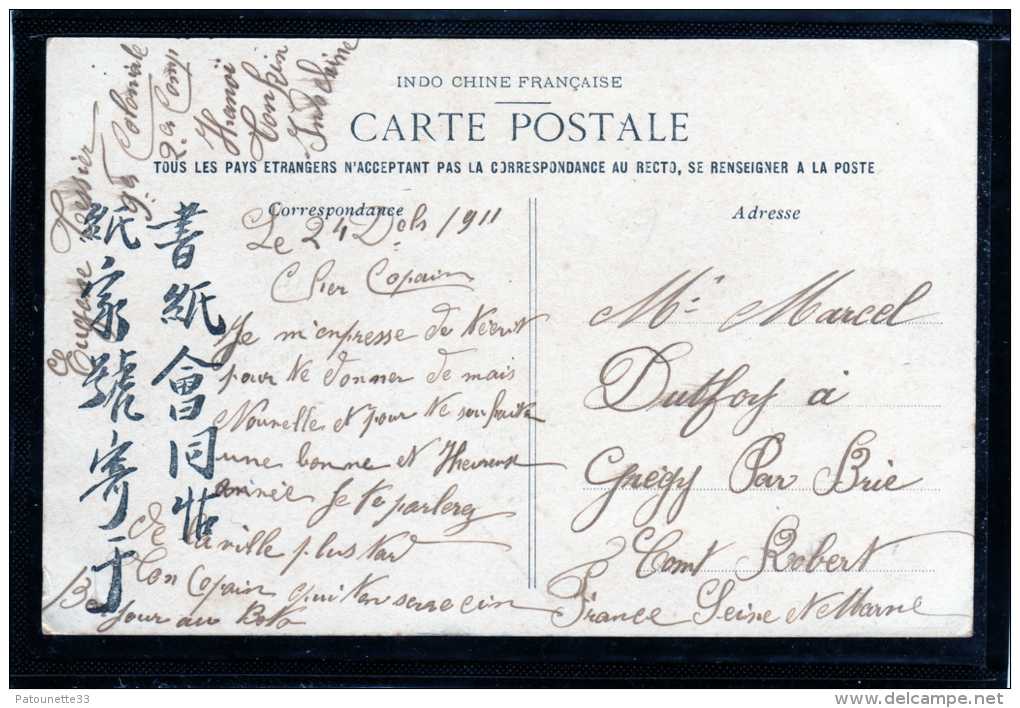 INDO CHINE FRANÇAISE
CARTE POSTALE
TOUS LES PAYS ETRANGERS N'ACCEPTANT PAS LA CORRESPONDANCE AU RECTO, SE RENSEIGNER A LA POSTE
Correspondance
Adresse
Eugène
9e Coloniale
2e Comp
Hanoï
Tonkin
Indochine
書紙會同
紙家號寄于
Le 24 1911
Cher Copain
Je m'enpresse de t'écrit
pour te donner de mais
Nouvelles et pour te souhaite
une bonne et Heureuse
année Je te parlerez
de la ville plus tard
Ton Copain qui ten serre cin
Bonjour au
Mr Marcel
Dutfoy à
Grégy Par Brie
Comt Robert
France Seine et Marne
Patounette33
delcampe.net